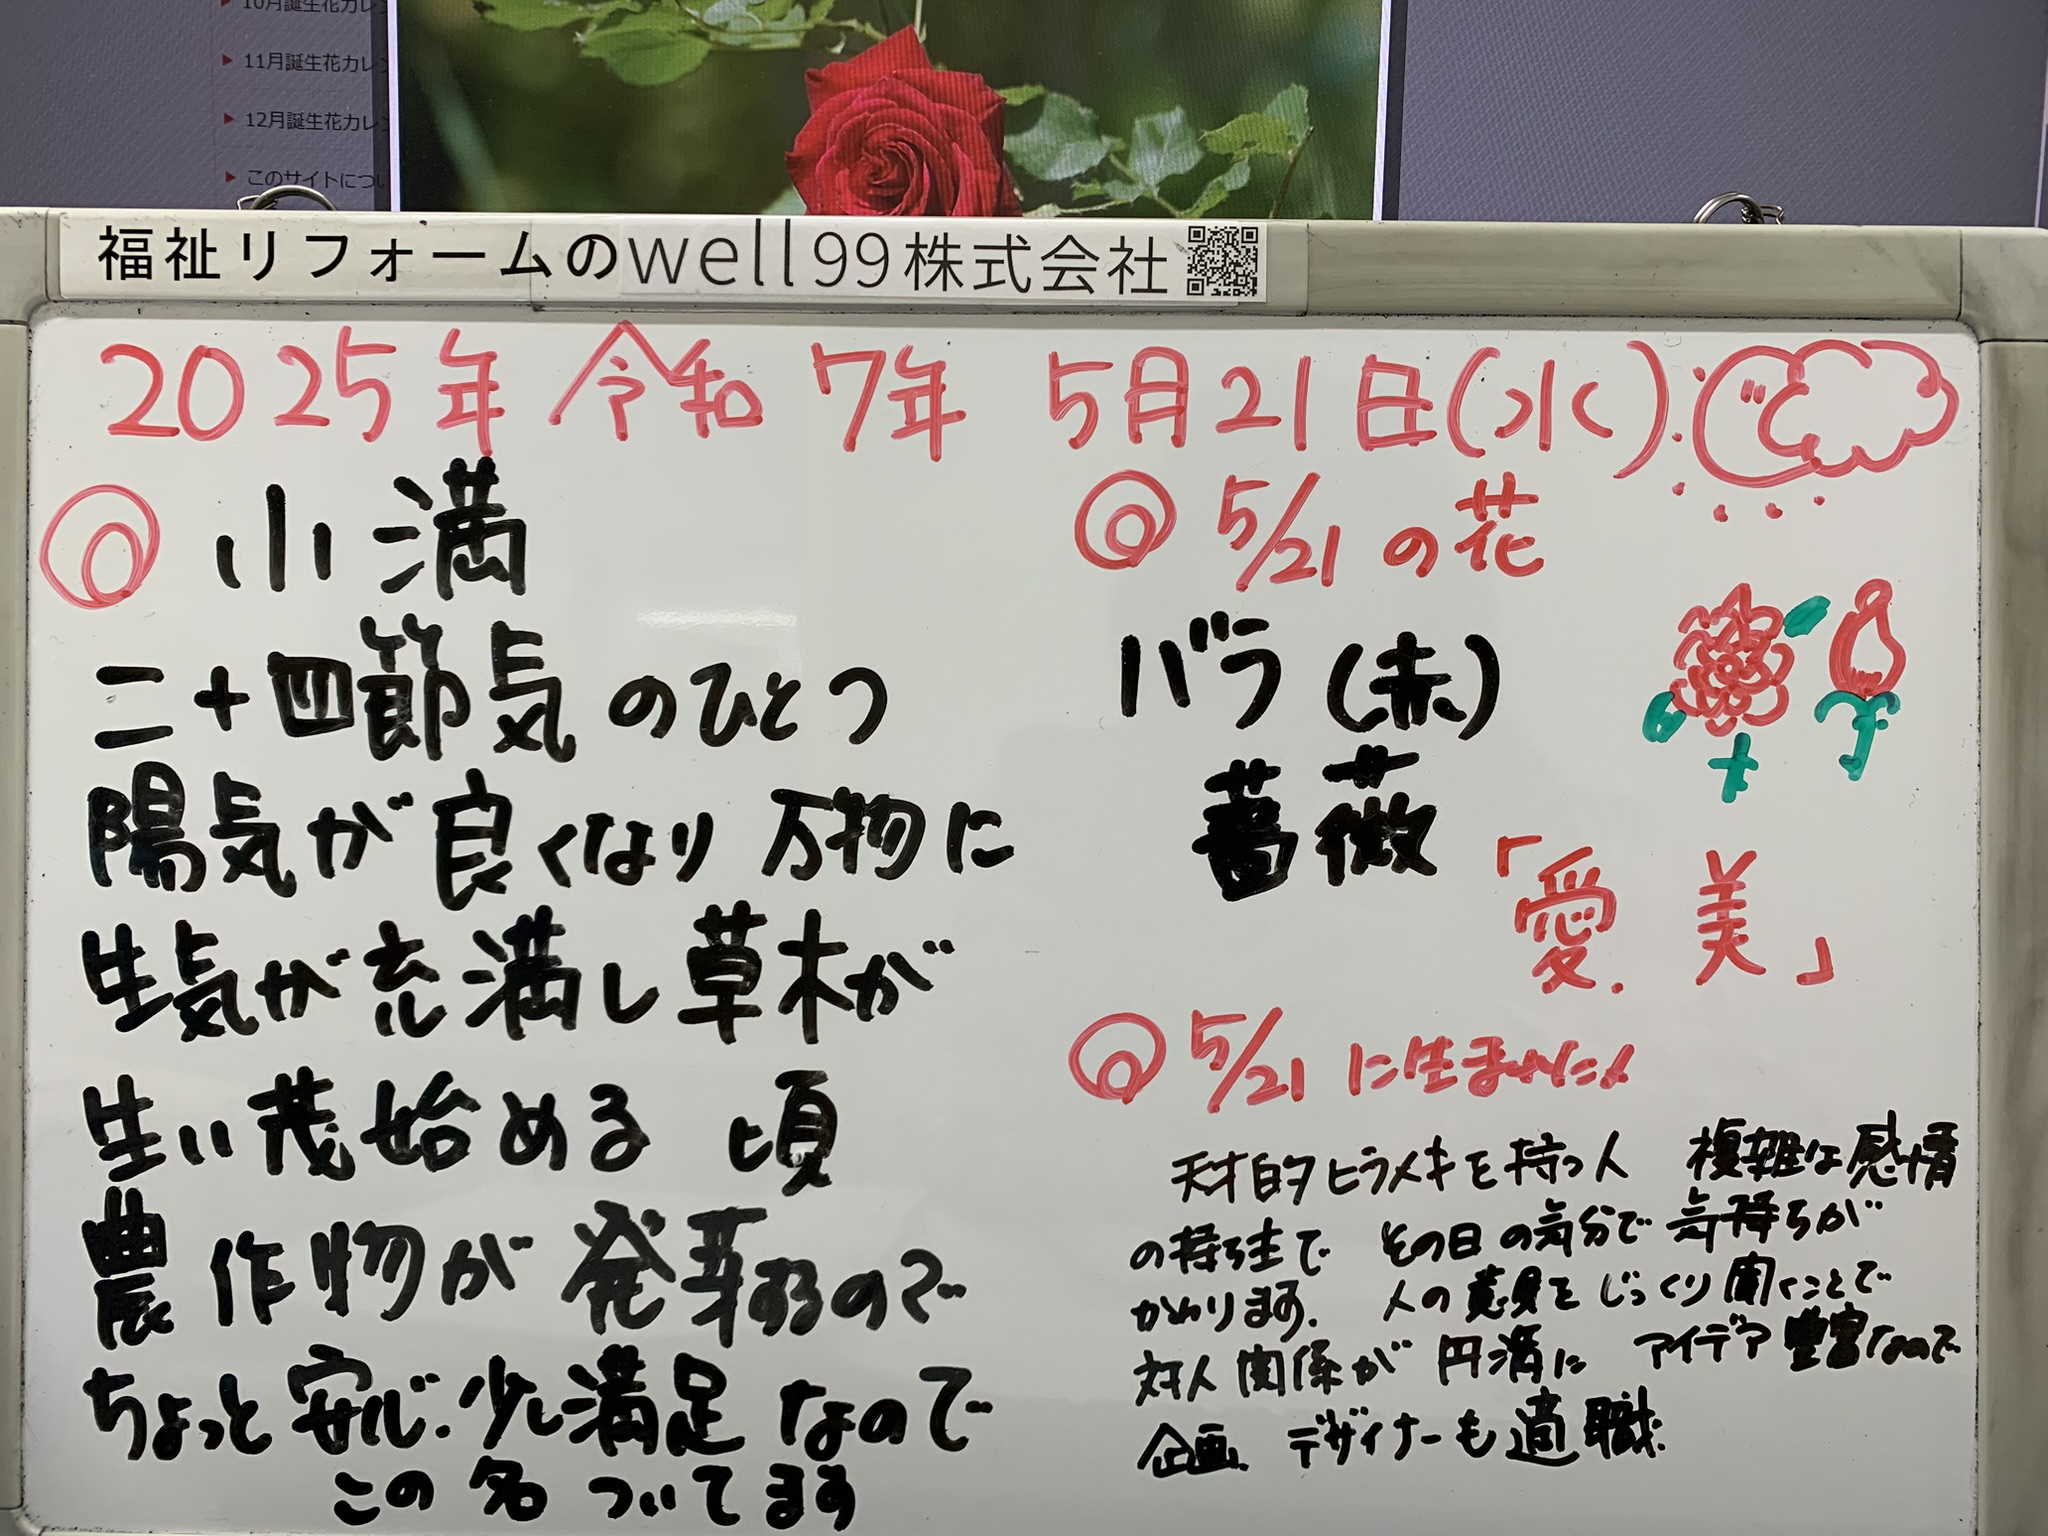 10月誕生花カレン
11月誕生花カレン
12月誕生花カレン
このサイトについ
福祉リフォームのwell99株式会社
2025年 令和7年 5月21日(水)
◎ 小満
二十四節気のひとつ
陽気が良くなり 万物に
生気が充満し草木が
生い茂始める 頃
農作物が発芽するので
ちょっと安心.少し満足なので
この名ついてます
◎ 5/21の花
バラ(赤)
薔薇
「愛.美」
◎ 5/21に生まれた!
天才的ヒラメキを持つ人 複雑な感情
の持ち主で その日の気分で気持ちが
かわります. 人の意見をじっくり聞くことで
対人関係が円満に アイデア豊富なので
企画.デザイナーも適職.